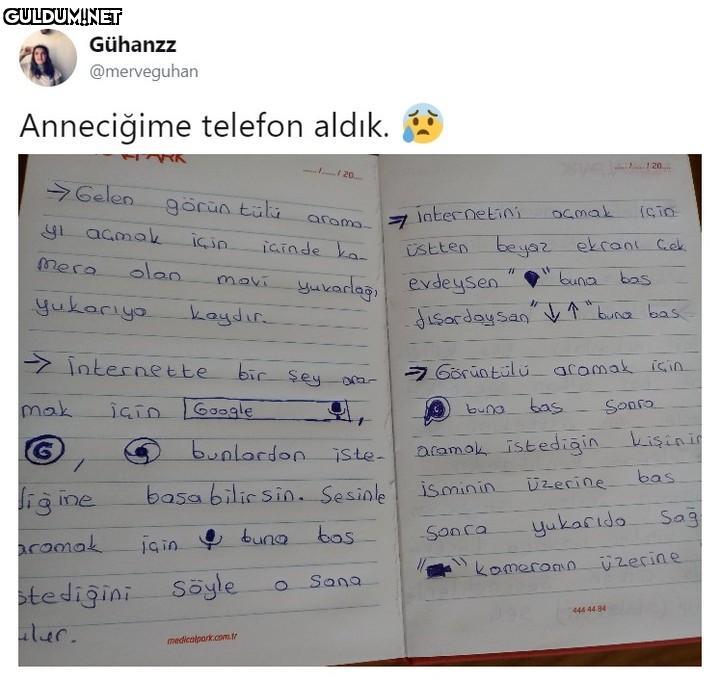 GULDUM.NET
Gühanzz
@merveguhan
Anneciğime telefon aldık.
.../.../20...
→ Gelen görüntülü arama-
yı açmak için içinde ka-
mera olan mavi yuvarlağı
yukarıya kaydır.
→ İnternette bir şey ara-
mak için Google ,
G , bunlardan iste-
diğine basabilirsin. Sesinle
aramak için buna bas
stediğini söyle o sana
ulur.
medicalpark.com.tr
.../.../20...
→ İnternetini açmak için
üstten beyaz ekranı çek
evdeysen " " buna bas
dışardaysan "↓↑" buna bas
→ Görüntülü aramak için
buna bas sonra
aramak istediğin kişinin
isminin üzerine bas
sonra yukarıda sağ
" " kameranın üzerine
444 44 84